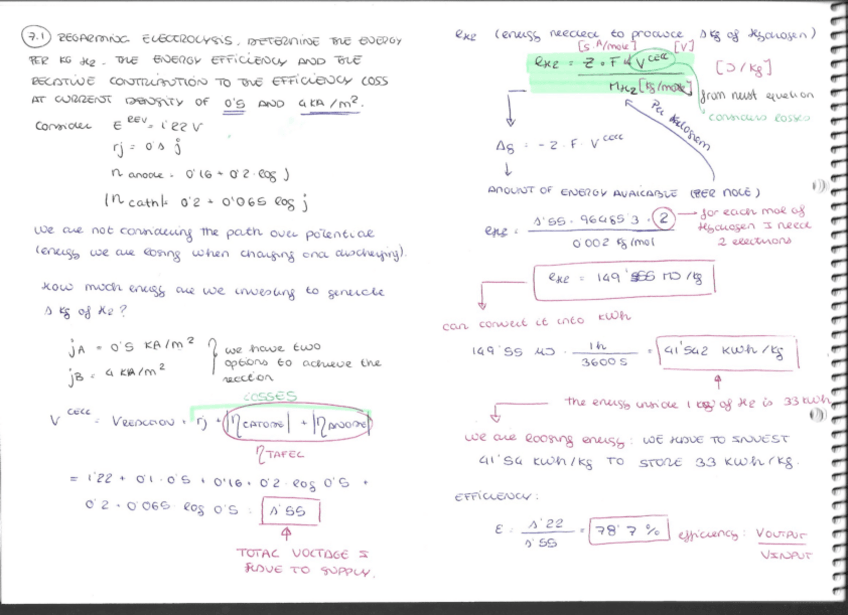 7.1 REGARDING ELECTROLYSIS, DETERMINE THE ENERGY
PER KG H2, THE ENERGY EFFICIENCY AND THE
RELATIVE CONTRIBUTION TO THE EFFICIENCY LOSS
AT CURRENT DENSITY OF 0'5 AND 4 KA/m².
CONSIDER E REV = 1'22 V
rj = 0'1 j
η anode = 0'16 + 0'2 log j
|η cath| = 0'2 + 0'065 log j
We are not considering the path over potential
(energy we are losing when charging and discharging).
How much energy are we investing to generate
1 kg of H2?
jA = 0'5 KA/m²
jB = 4 KA/m²
we have two
options to achieve the
LOSSES
V cell = VREACTION + rj + |ηCATODE| + |ηANODE|
ηTAFEL
= 1'22 + 0'1 · 0'5 + 0'16 + 0'2 · log 0'5 +
0'2 + 0'065 · log 0'5 = 1'55
TOTAL VOLTAGE I
HAVE TO SUPPLY.
eH2 (energy needed to produce 1 kg of Hydrogen)
[s·A/mole] [V]
eH2 = Z · F · V cell / MH2 [kg/mole] [J/kg]
from nernst equation
considers losses
Per kilogram
Δg = -2 · F · V cell
AMOUNT OF ENERGY AVAILABLE (PER MOLE)
eH2 = 1'55 · 96485'3 · 2 / 0'002 kg/mol
for each mol of
Hydrogen I need
2 electrons
eH2 = 149'555 MJ/kg
can convert it into kWh
149'55 MJ · 1h / 3600 s = 41'542 kWh/kg
the energy inside 1 kg of H2 is 33 kWh
we are loosing energy: WE HAVE TO INVEST
41'54 kWh/kg TO STORE 33 kWh/kg.
EFFICIENCY:
ε = 1'22 / 1'55 = 78'7 % efficiency: VOUTPUT / VINPUT